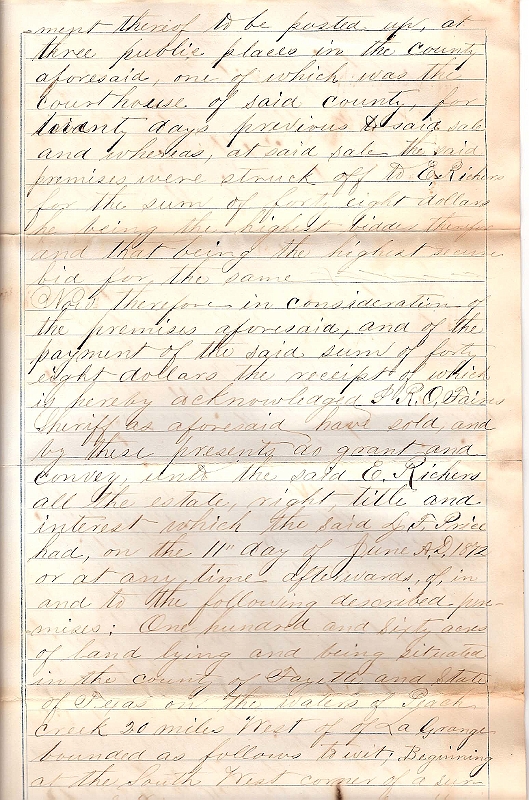 ment thereof to be posted up, at
three public places in the county
aforesaid, one of which was the
courthouse of said county, for
twenty days previous to said sale
and whereas, at said sale the said
premises were struck off to E. Richers
for the sum of forty eight dollars
he being the highest bidder therefor
and that being the highest
bid for the same
Now therefore in consideration of
the premises aforesaid, and of the
payment of the said sum of forty
eight dollars the receipt of which
is hereby acknowledged I R. O. Faires
Sheriff as aforesaid have sold, and
by these presents, do grant and
convey, unto the said E. Richers
all the estate, right, title and
interest which the said L. F. Price
had, on the 11" day of June A.D. 1872
or at any time afterwards, of, in
and to the following described pre-
mises: One hundred and Sixty acres
of land lying and being situated
in the county of Fayette and State
of Texas on the waters of Peach
creek 20 miles West of of La Grange
bounded as follows to wit; Beginning
at the South West corner of a sur-